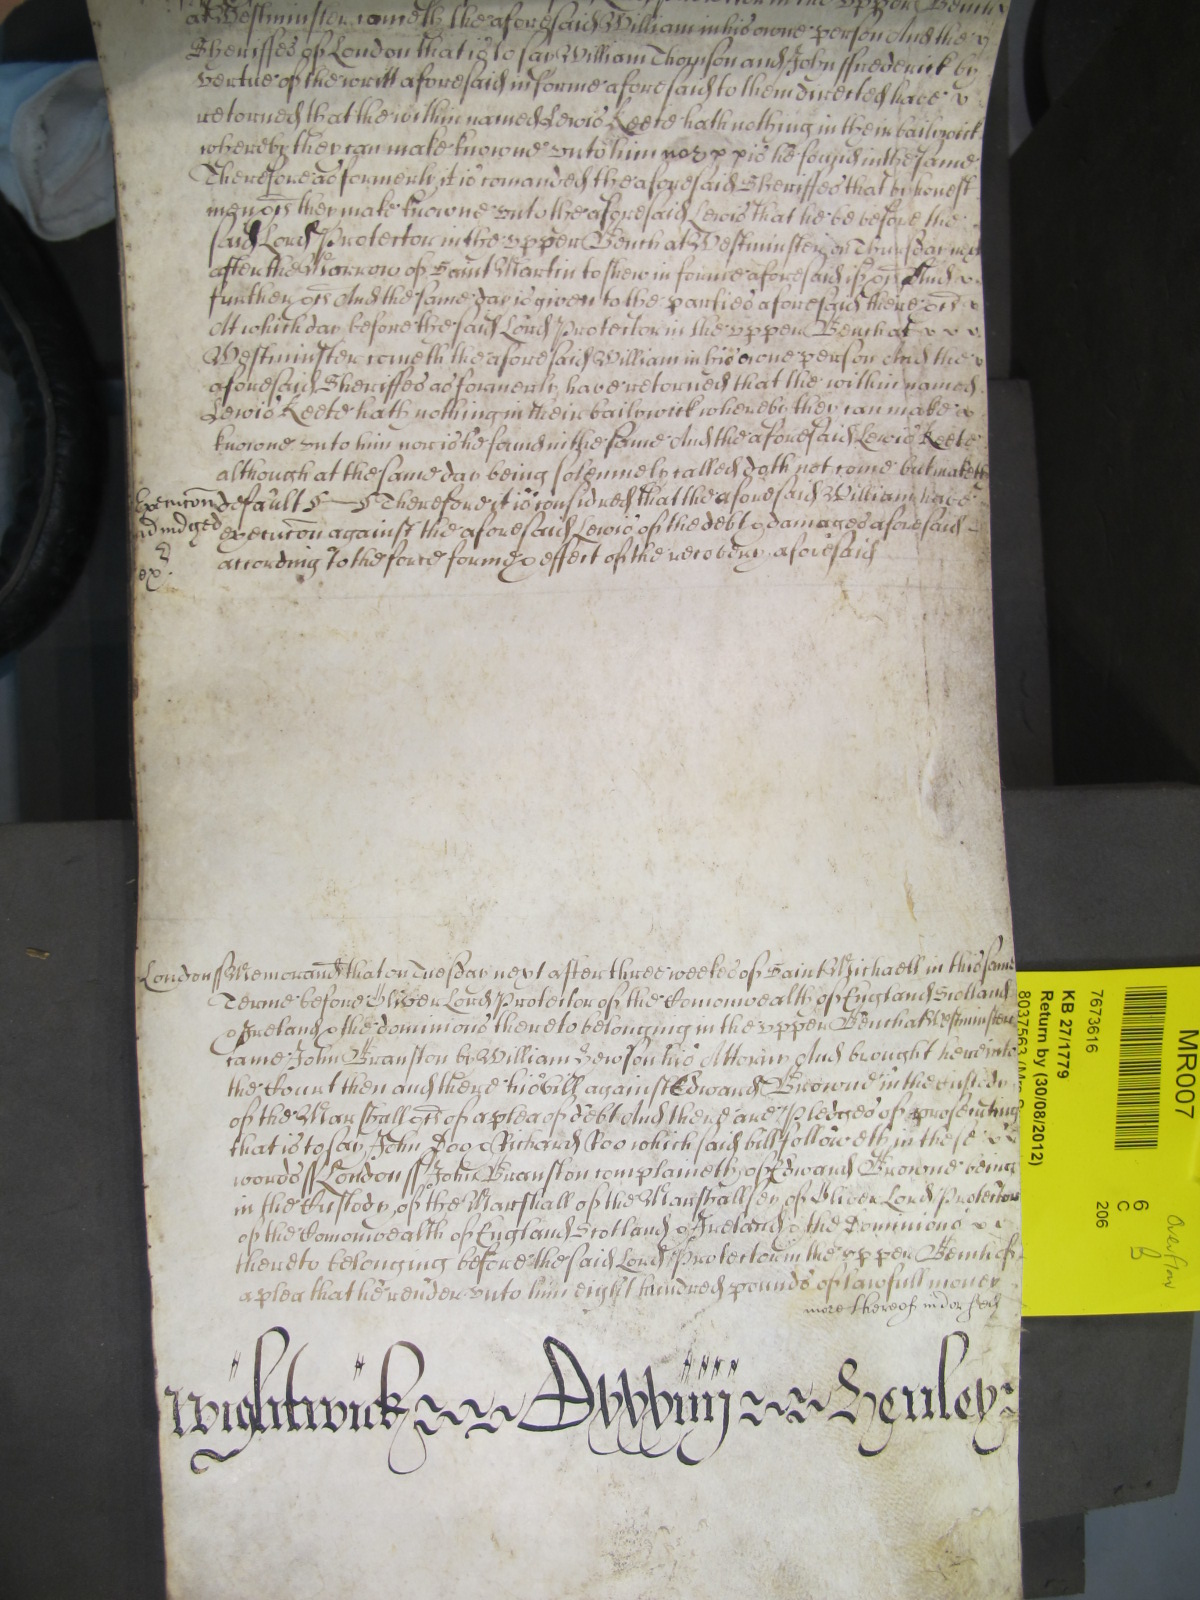 at Westminster cometh the aforesaid William in his owne person And the
Sheriffes of London that is to say William Thomson and John ffrederick by
vertue of the writt aforesaid in forme aforesaid to them directed have
retorned that the within named Lewis Keete hath nothing in their bailywick
whereby they can make knowne unto him nor is he found in the same
Therefore as formerly it is comanded the aforesaid Sheriffes that by honest
men &c they make knowne unto the aforesaid Lewis that he be before the
said Lord Protector in the upper Bench at Westminster on Thursday next
after the Morrow of Saint Martin to shew in forme aforesaid if &c And
further &c And the same day is given to the parties aforesaid there &c
At which day before the said Lord Protector in the upper Bench at
Westminster cometh the aforesaid William in his owne person And the
aforesaid Sheriffes as formerly have retorned that the within named
Lewis Keete hath nothing in their bailywick whereby they can make
knowne unto him nor is he found in the same And the aforesaid Lewis Keete
although at the same day being solemnely called doth not come but maketh
default Therefore it is considred that the aforesaid William have
execucon against the aforesaid Lewis of the debt & damages aforesaid
according to the force forme & effect of the recovery aforesaid
Execucon
adiudged
ex
London ss Memorand that on Tuesday next after three weekes of Saint Michaell in this same
Terme before Oliver Lord Protector of the Comonwealth of England Scotland
& Ireland & the dominions thereto belonging in the upper Bench at Westminster
came John Branston by William Hewson his Attorny And brought here into
the Court then and there his bill against Edward Browne in the custody
of the Marshall &c of a plea of debt And there are Pledges of prosecuting
that is to say John Doo & Richard Roo which said bill followeth in these
words ss London ss John Branston complaineth of Edward Browne being
in the Custody of the Marshall of the Marshallsey of Oliver Lord Protector
of the Comonwealth of England Scotland & Ireland & the Dominions
thereto belonging before the said Lord Protector in the upper Bench of
a plea that he render unto him eight hundred pounds of lawfull money
more thereof in dor
Wightwick Henley
MR007
7673616
KB 27/1779
Return by (30/08/2012)
6
C
206
Overflow